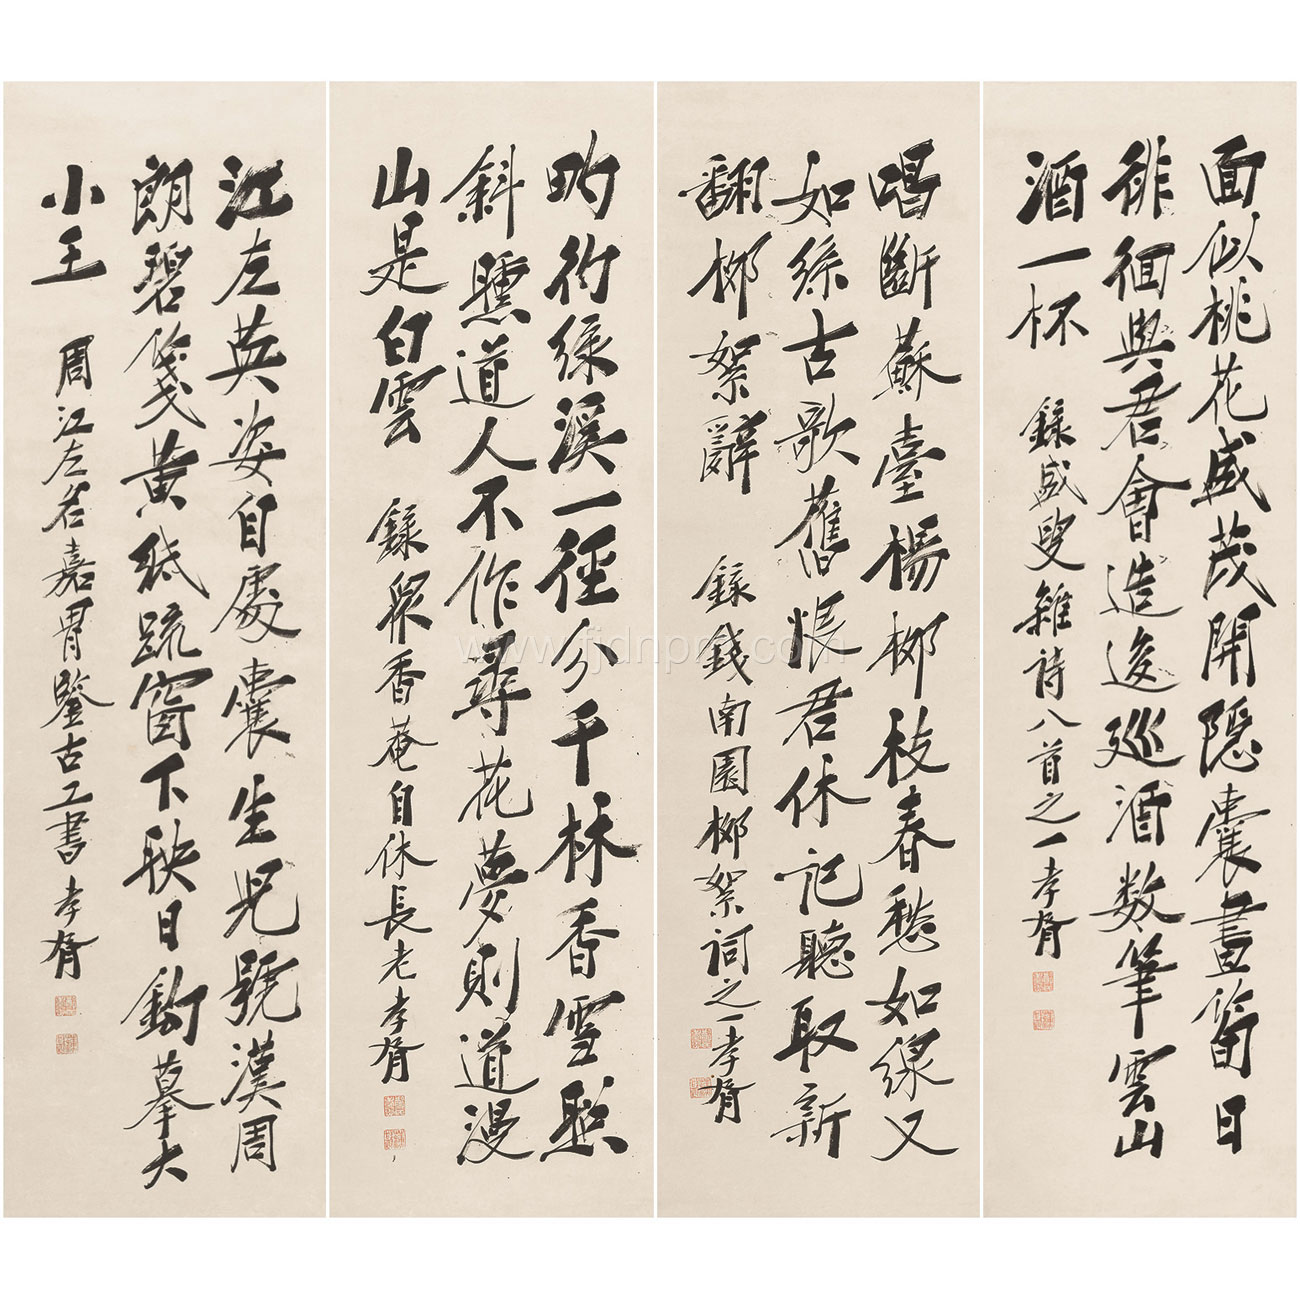 面似桃花盛茂開隱囊畫筍日
徘徊與君會造逡巡酒数筆雲山
酒一杯
錄盛叟雜詩八首之一孝胥
唱斷蘇臺楊柳枝春愁如綫又
如絲古歌舊悵君休記聽取新
翻柳絮辭
錄錢南園柳絮詞之一孝胥
彴衍綠溪一徑分千林香雪照
斜曛道人不作尋花夢則道漫
山是白雲
錄眾香菴自休長老孝胥
江左英姿自處囊生兒號漢周
朗碧箋黃紙疏窗下秧日鉤摹大
小王
周江左名嘉胄鑒古工書孝胥
www.fjdnpm.com